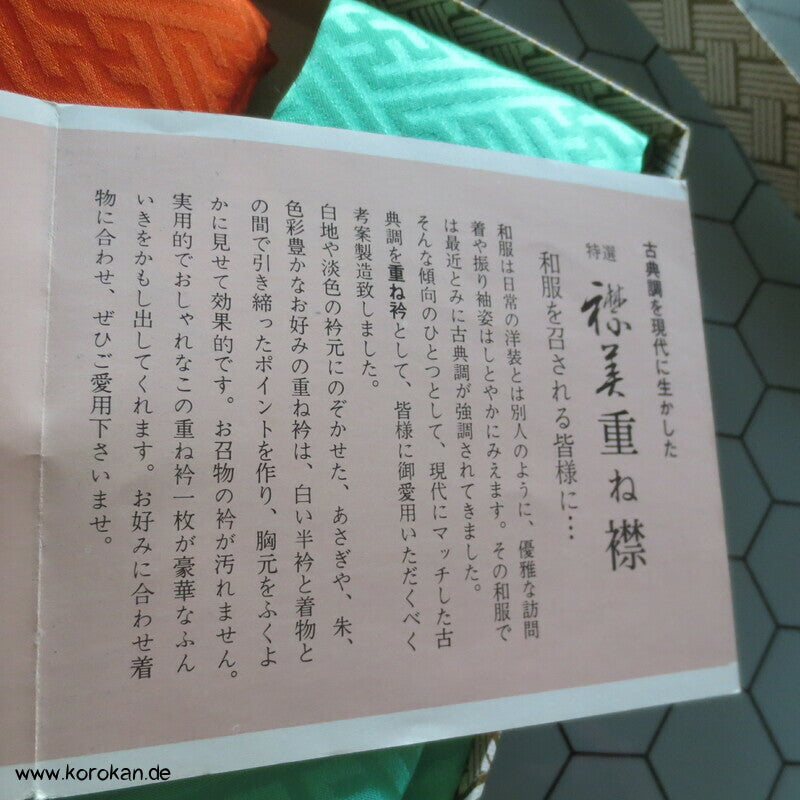 古典調を現代に生かした
特選
襟美重ね襟
和服を召される皆様に…
和服は日常の洋装とは別人のように、優雅な訪問
着や振り袖姿はしとやかにみえます。その和服で
は最近とみに古典調が強調されてきました。
そんな傾向のひとつとして、現代にマッチした古
典調を重ね衿として、皆様に御愛用いただくべく
考案製造致しました。
白地や淡色の衿元にのぞかせた、あさぎや、朱、
色彩豊かなお好みの重ね衿は、白い半衿と着物と
の間で引き締ったポイントを作り、胸元をふくよ
かに見せて効果的です。お召物の衿が汚れません。
実用的でおしゃれなこの重ね衿一枚が豪華なふん
いきをかもし出してくれます。お好みに合わせ着
物に合わせ、ぜひご愛用下さいませ。
www.korokan.de